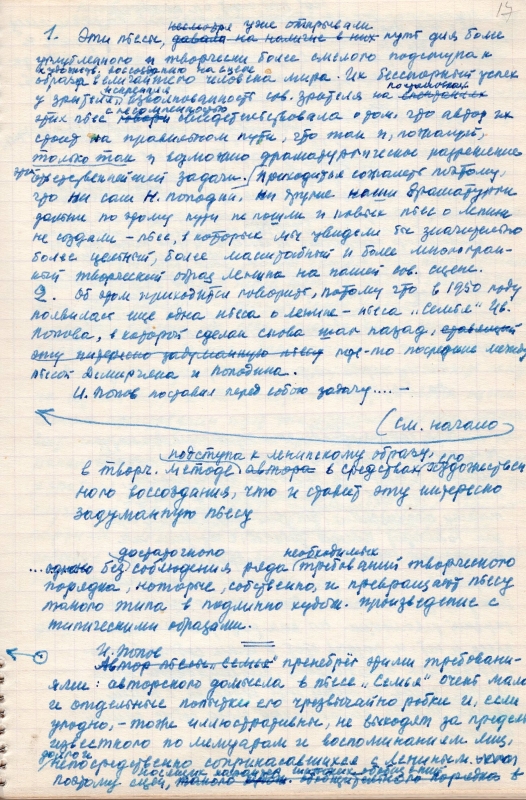 17
несмотря уже открывали
1. Эти пьесы, давала на наличие в них путь для более
углубленного и творчески более смелого подступа к
художеств. воссозданию на сцене
образа величайшего человека мира. Их бесспорный успех
у зрителей взволнованность сов. зрителя на спектаклях
этих пьес свидетельствовала о том, что автор их
стоит на правильном пути, что так и, пожалуй,
только так и возможно драматургическое разрешение
ответственнейшей задачи. Приходится сожалеть поэтому,
что ни сам Н. Погодин, ни другие наши драматурги
дальше по этому пути не пошли и новых пьес о Ленине
не создали – пьес, в которых мы увидели бы значительно
более цельный, более масштабный и более многогран-
ный творческий образ Ленина на нашей сов. сцене.
2. Об этом приходится говорить, потому что в 1950 году
появилась еще одна пьеса о Ленине – пьеса „Семья" Ив.
Попова, в которой сделан снова шаг назад, ставящий
эту интересно задуманную пьесу где-то посредине между
пьесой Демирчяна и Погодина.
И. Попов поставил перед собою задачу.... –
(см. начало
подступа к ленинскому образу,
в творч. методе автора в средствах его художествен
ного воссоздания, что и ставит эту интересно
задуманную пьесу
достаточного необходимых
...однако без соблюдения ряда требований творческого
порядка, которые, собственно, и превращают пьесу
такого типа в подлинно худож. произведение с
типическими образами.
И. Попов
Автор пьесы „Семья" пренебрёг этими требовани-
ями: авторского домысла в пьесе „Семья" очень мало
и отдельные попытки его чрезвычайно робки и, если
угодно, – тоже иллюстративны, не выходят за пределы
известного по мемуарам и воспоминаниям лиц,
непосредственно соприкасавшихся с Лениным.
поэтому сцен, порядка в